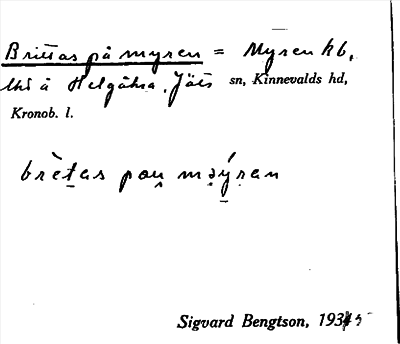 Brittas på myren = Myren kb,
lht å Helgåkra, Jäts sn, Kinnevalds hd,
Kronob. l.
brètas pou məýran
Sigvard Bengtson, 1935